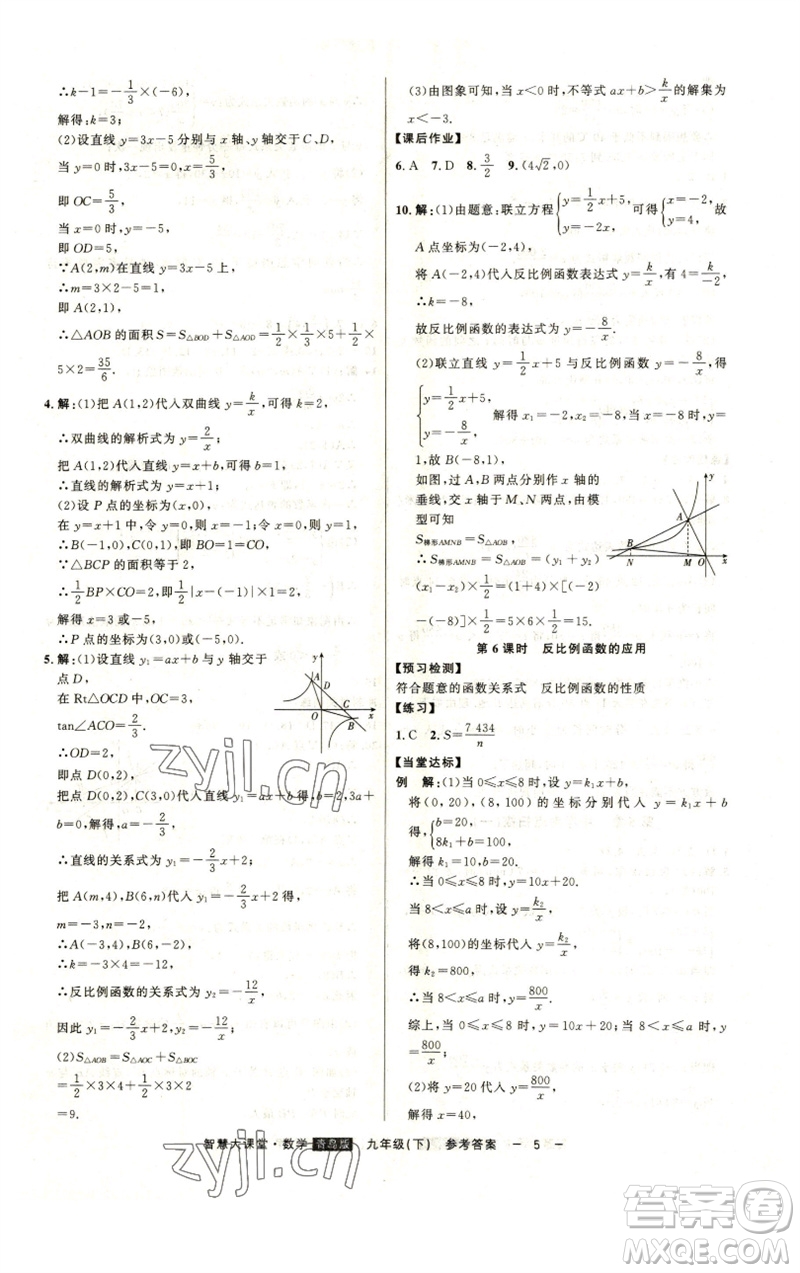 ∴k-1=-1/3×(-6),
解得:k=3;
(2)设直线 y=3x-5 分别与 x 轴、y 轴交于 C、D,
当 y=0 时,3x-5=0,x=5/3,
即 OC=5/3,
当 x=0 时,y=-5,
即 OD=5,
∵A(2,m)在直线 y=3x-5 上,
∴m=3×2-5=1,
即 A(2,1),
∴△AOB 的面积 S=S△BOD+S△AOD=1/2×1/3×5+1/2×
5×2=35/6.
4. 解:(1)把 A(1,2)代入双曲线 y=k/x,可得 k=2,
∴双曲线的解析式为 y=2/x;
把 A(1,2)代入直线 y=x+b,可得 b=1,
∴直线的解析式为 y=x+1;
(2)设 P 点的坐标为(x,0),
在 y=x+1 中,令 y=0,则 x=-1;令 x=0,则 y=1,
∴B(-1,0),C(0,1),即 BO=1=CO,
∵△BCP 的面积等于 2,
∴1/2 BP×CO=2,即1/2|x-(-1)|×1=2,
解得 x=3 或-5,
∴P 点的坐标为(3,0)或(-5,0).
5. 解:(1)设直线 y₁=ax+b 与 y 轴交于
点 D,
在 Rt△OCD 中,OC=3,
tan∠ACO=2/3.
∴OD=2,
即点 D(0,2),
把点 D(0,2),C(3,0)代入 y₁=ax+b 得,b=2,3a+
b=0,解得,a=-2/3,
∴直线的关系式为 y₁=-2/3x+2;
把 A(m,4),B(6,n)代入 y₁=-2/3x+2 得,
m=-3,n=-2,
∴A(-3,4),B(6,-2),
∴k=-3×4=-12,
∴反比例函数的关系式为 y₂=-12/x,
因此 y₁=-2/3x+2,y₂=-12/x;
(2)S△AOB=S△AOC+S△BOC
=1/2×3×4+1/2×3×2
=9.
(3)由图象可知,当 x<0 时,不等式 ax+b>k/x 的解集为
x<-3.
【课后作业】
6. A 7. D 8. 3/2 9. (4√2,0)
10. 解:(1)由题意:联立方程{y=1/2x+5, y=-2x, 可得{x=-2, y=4, 故
A 点坐标为(-2,4),
将 A(-2,4)代入反比例函数表达式 y=k/x,有 4=k/-2,
∴k=-8,
故反比例函数的表达式为 y=-8/x;
(2)联立直线 y=1/2x+5 与反比例函数 y=-8/x,得
{y=1/2x+5, y=-8/x 解得 x₁=-2,x₂=-8,当 x=-8 时,y=
1,故 B(-8,1),
如图,过 A、B 两点分别作 x 轴的
垂线,交 x 轴于 M、N 两点,由模
型可知
S梯形AMNB=S△AOB,
∴S梯形AMNB=S△AOB=(y₁+y₂)×
(x₁-x₂)×1/2=(1+4)×[(-2)
-(-8)]×1/2=5×6×1/2=15.
第 6 课时 反比例函数的应用
【预习检测】
符合题意的函数关系式 反比例函数的性质
【练习】
1. C 2. S=7 434/n
【当堂达标】
例 解:(1)当 0≤x≤8 时,设 y=k₁x+b,
将(0,20),(8,100)的坐标分别代入 y=k₁x+b
得,{b=20, 8k₁+b=100,
解得 k₁=10,b=20.
∴当 0≤x≤8 时,y=10x+20.
当 8<x≤a 时,设 y=k₂/x,
将(8,100)的坐标代入 y=k₂/x,
得 k₂=800,
∴当 8<x≤a 时,y=800/x;
综上,当 0≤x≤8 时,y=10x+20;当 8<x≤a
时,y=800/x;
(2)将 y=20 代入 y=800/x,
解得 x=40,
智慧大课堂·数学 青岛版 九年级(下) 参考答案 — 5 —
zyjl.cn
zyjl.cn
答案圈
MXQE.COM